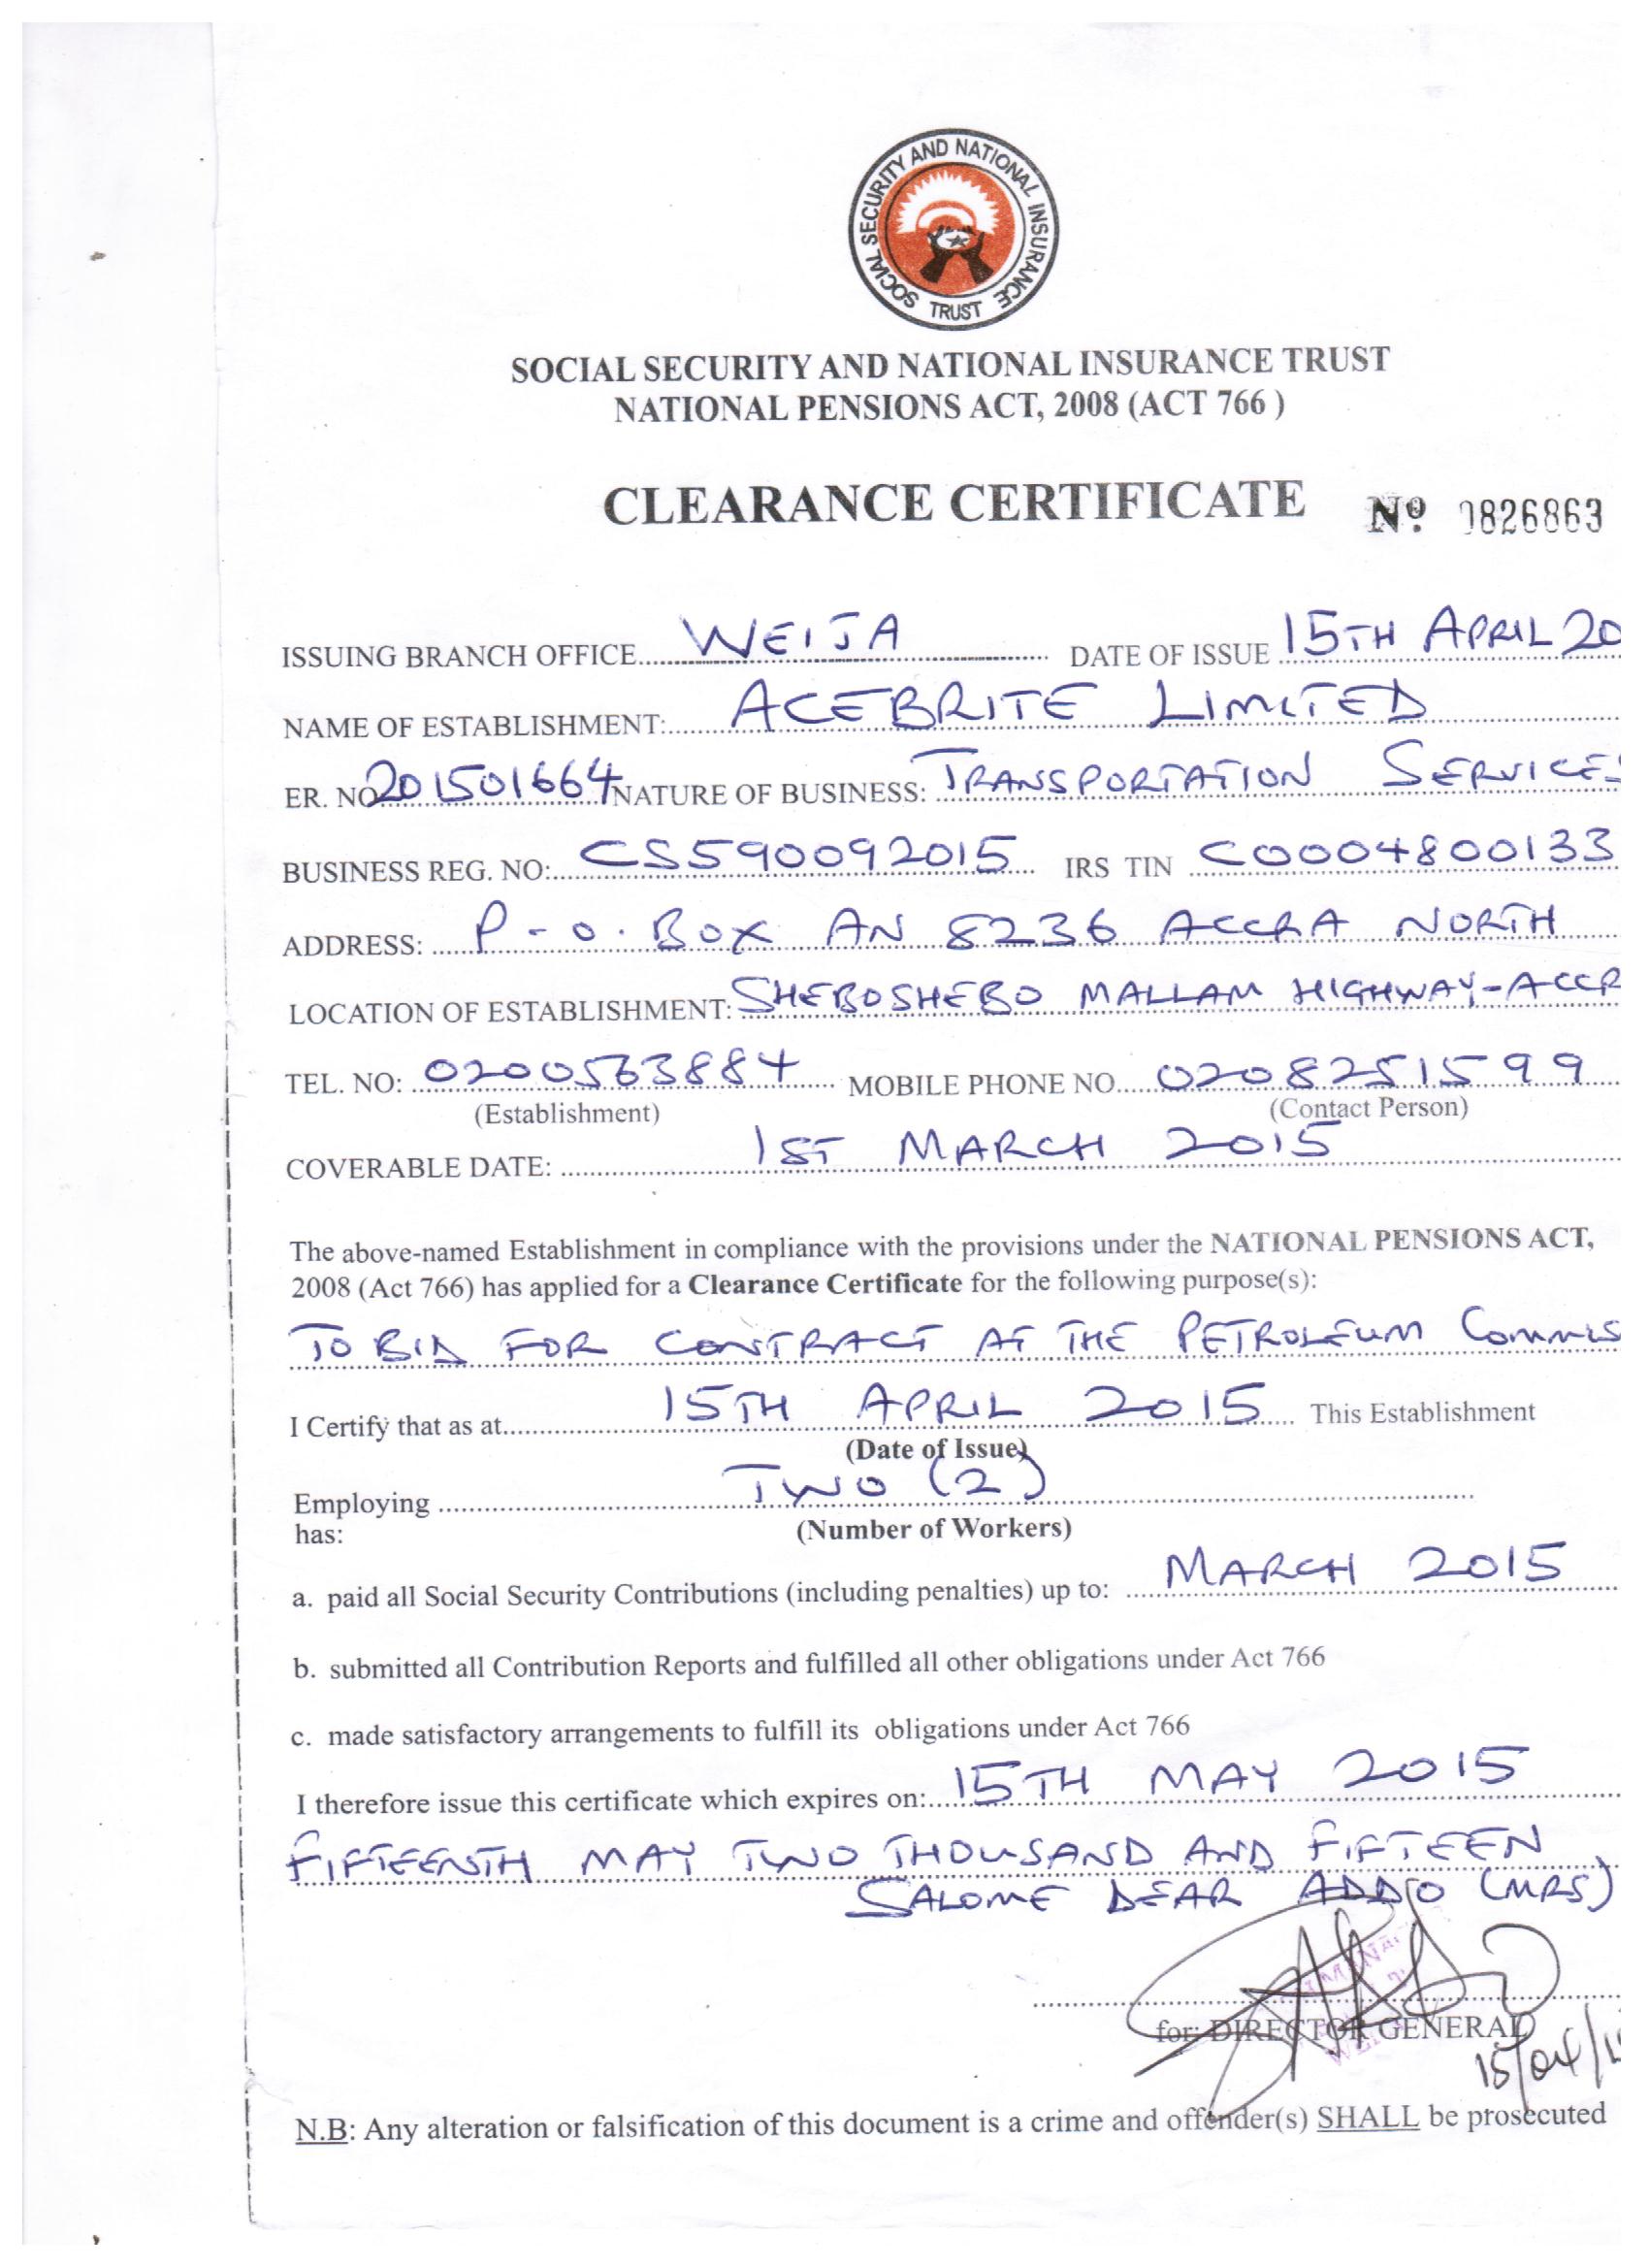 SOCIAL SECURITY AND NATIONAL INSURANCE TRUST
SOCIAL SECURITY AND NATIONAL INSURANCE TRUST
NATIONAL PENSIONS ACT, 2008 (ACT 766 )
CLEARANCE CERTIFICATE Nº 0826863
ISSUING BRANCH OFFICE WEIJA DATE OF ISSUE 15TH APRIL 20
NAME OF ESTABLISHMENT: ACEBRITE LIMITED
ER. NO 201501664 NATURE OF BUSINESS: TRANSPORTATION SERVICES
BUSINESS REG. NO: CS590092015 IRS TIN C0004800133
ADDRESS: P.O. BOX AN 8236 ACCRA NORTH
LOCATION OF ESTABLISHMENT: SHEBOSHEBO MALLAM HIGHWAY-ACCR
TEL. NO: 0200563884 MOBILE PHONE NO. 0208251599
(Establishment) (Contact Person)
COVERABLE DATE: 1ST MARCH 2015
The above-named Establishment in compliance with the provisions under the NATIONAL PENSIONS ACT,
2008 (Act 766) has applied for a Clearance Certificate for the following purpose(s):
TO BID FOR CONTRACT AT THE PETROLEUM COMMIS
I Certify that as at 15TH APRIL 2015 This Establishment
(Date of Issue)
Employing TWO (2)
has: (Number of Workers)
a. paid all Social Security Contributions (including penalties) up to: MARCH 2015
b. submitted all Contribution Reports and fulfilled all other obligations under Act 766
c. made satisfactory arrangements to fulfill its obligations under Act 766
I therefore issue this certificate which expires on: 15TH MAY 2015
FIFTEENTH MAY TWO THOUSAND AND FIFTEEN
SALOME DEAR ADDO (MRS)
for: DIRECTOR GENERAL
15/04/1
N.B: Any alteration or falsification of this document is a crime and offender(s) SHALL be prosecuted